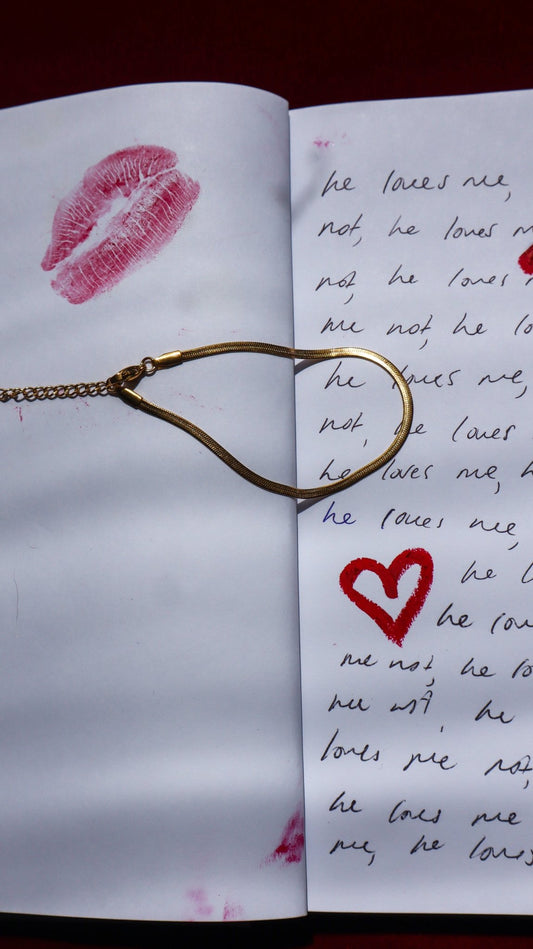 he loves me,
not, he loves
not, he loves
me not, he
he loves me,
not, he loves
he loves me,
he loves me,
he
he
me not, he
me not, he
loves me not,
he loves me
me, he loves